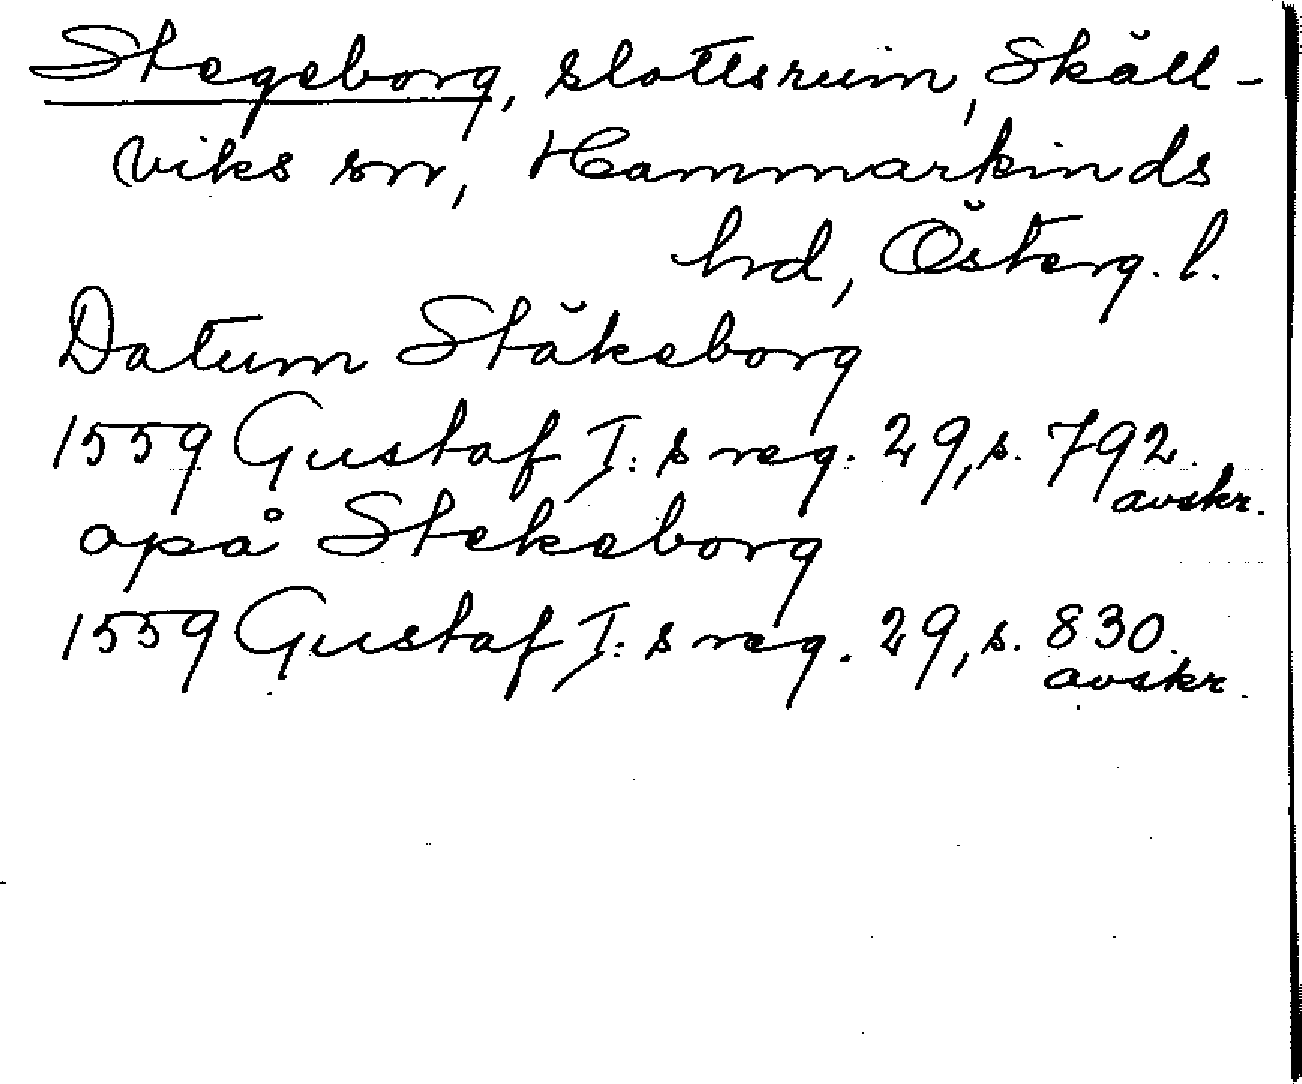 Stegeborg, slottsruin, Skäll-
viks sn, Hammarkinds
hrd, Österg. l.
Datum Stäkeborg
1559 Gustaf I:s reg. 29, s. 792.
avskr.
opå Stekeborg
1559 Gustaf I:s reg. 29, s. 830.
avskr.